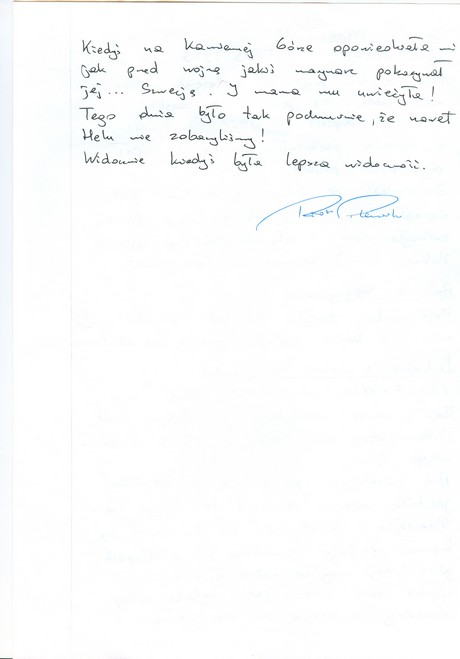 Kiedyś na Kamiennej Górze opowiedziała mi
jak przed wojną jakiś marynarz pokazywał
jej... Szwecję. I mama mu uwierzyła!
Tego dnia było tak pochmurnie, że nawet
Helu nie zobaczyliśmy!
Widocznie kiedyś była lepsza widoczność.